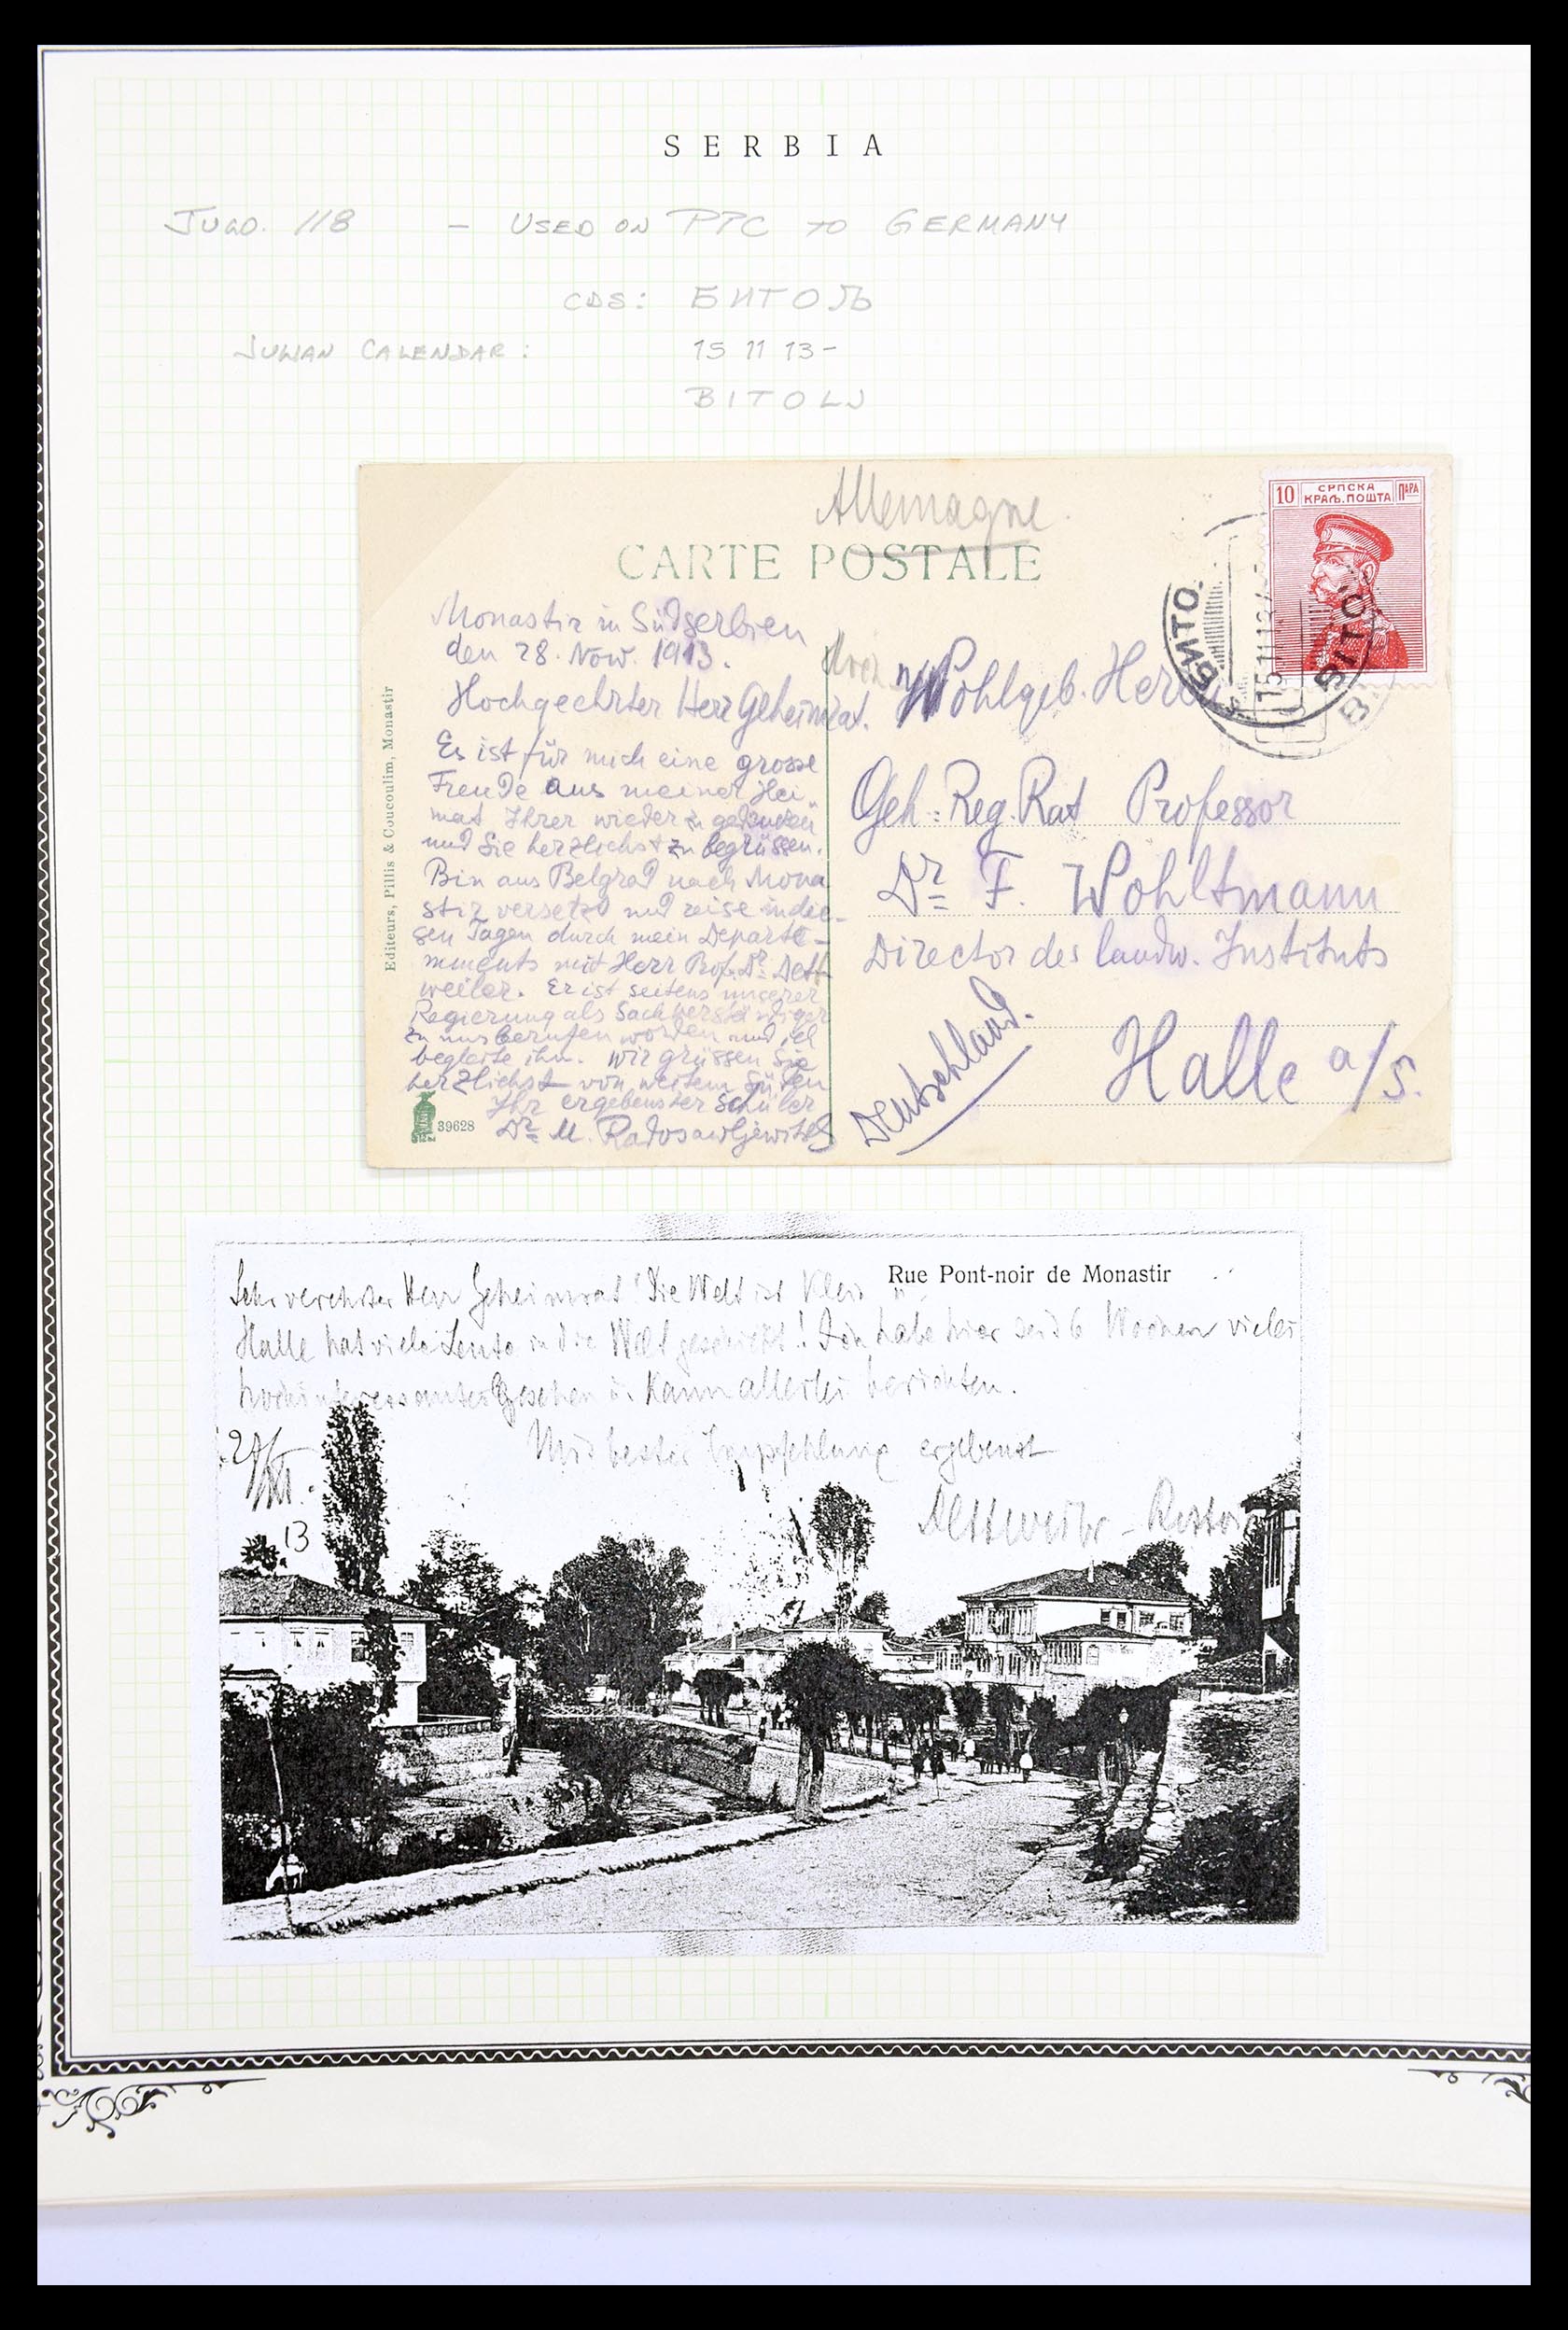 SERBIA
JUGO. 118 – USED ON PPC TO GERMANY
CDS: БИТОЉ
JULIAN CALENDAR: 15 11 13-
BITOLJ
Allemagne.
CARTE POSTALE
10 СРПСКА ПАРА
КРАЉ. ПОШТА
БИТО
15.11.13
BITO
Monastir in Südserbien
den 28. Nov. 1913.
Hochgeehrter Herr Geheimrat.
Es ist für mich eine grosse
Freude aus meiner Hei-
mat Ihrer wieder zu gedenken
und Sie herzlichst zu begrüssen.
Bin aus Belgrad nach Mona
stir versetzt und reise in die-
sen Tagen durch mein Departe-
ments mit Herr Prof. Dr. Dett
weiler. Er ist seitens unserer
Regierung als Sachverständiger
zu uns berufen worden und ich
begleite ihn. Wir grüssen Sie
herzlichst von weitem Süden
Ihr ergebenster Schüler
Dr. M. Radosawljewitsch
Editeurs, Pillis & Coucoulim, Monastir
39628
Wohlgeb. Herrn
Geh. Reg. Rat Professor
Dr. F. Wohltmann
Director des landw. Instituts
Halle a/S.
Deutschland.
Rue Pont-noir de Monastir
Sehr verehrter Herr Geheimrat! Die Welt ist klein
Halle hat viele Leute in die Welt geschickt! Ich habe hier seit 6 Wochen vieles
hochinteressantes gesehen u. kann allerlei berichten.
Mit bester Empfehlung ergebenst
Dettweiler - Rostock
13